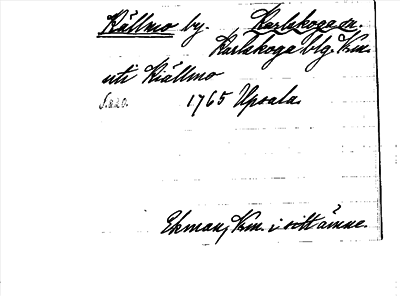 Källmo by. Karlskoga sn.
Karlskoga blg. Km.
uti Kiällmo
S. 820. 1765 Upsala.
Ekman, Km. i sitt ämne.